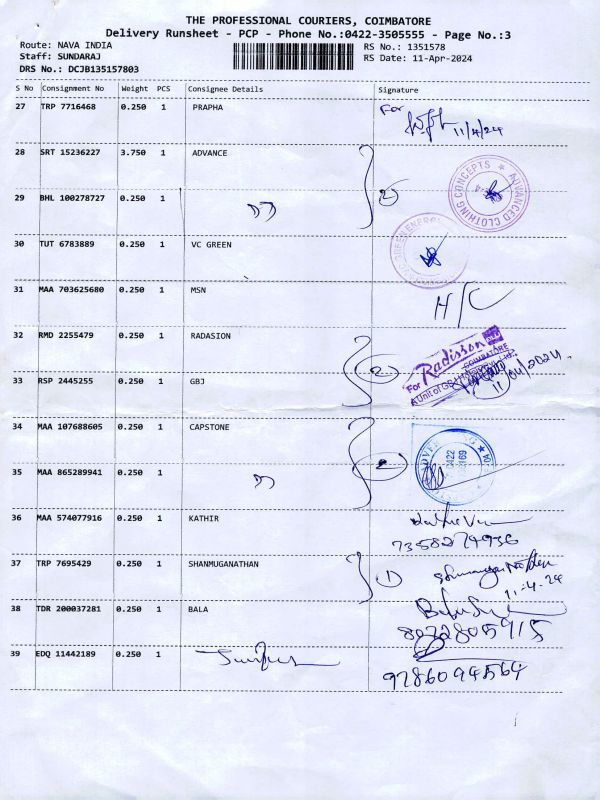 THE PROFESSIONAL COURIERS, COIMBATORE
Delivery Runsheet - PCP - Phone No.:0422-3505555 - Page No.:3
Route: NAVA INDIA
Staff: SUNDARAJ
DRS No.: DCJB135157803
RS No.: 1351578
RS Date: 11-Apr-2024
S No Consignment No Weight PCS Consignee Details Signature
27 TRP 7716468 0.250 1 PRAPHA For
11/4/24
28 SRT 15236227 3.750 1 ADVANCE
ADVANCED CLOTHING CONCEPTS
29 BHL 100278727 0.250 1
30 TUT 6783889 0.250 1 VC GREEN
31 MAA 703625680 0.250 1 MSN H/C
32 RMD 2255479 0.250 1 RADASION
For Radisson
COIMBATORE
11/04/2024
33 RSP 2445255 0.250 1 GBJ
34 MAA 107688605 0.250 1 CAPSTONE
35 MAA 865289941 0.250 1
36 MAA 574077916 0.250 1 KATHIR
7358279936
37 TRP 7695429 0.250 1 SHANMUGANATHAN 1
11-4-24
38 TDR 200037281 0.250 1 BALA
39 EDQ 11442189 0.250 1
9786094564